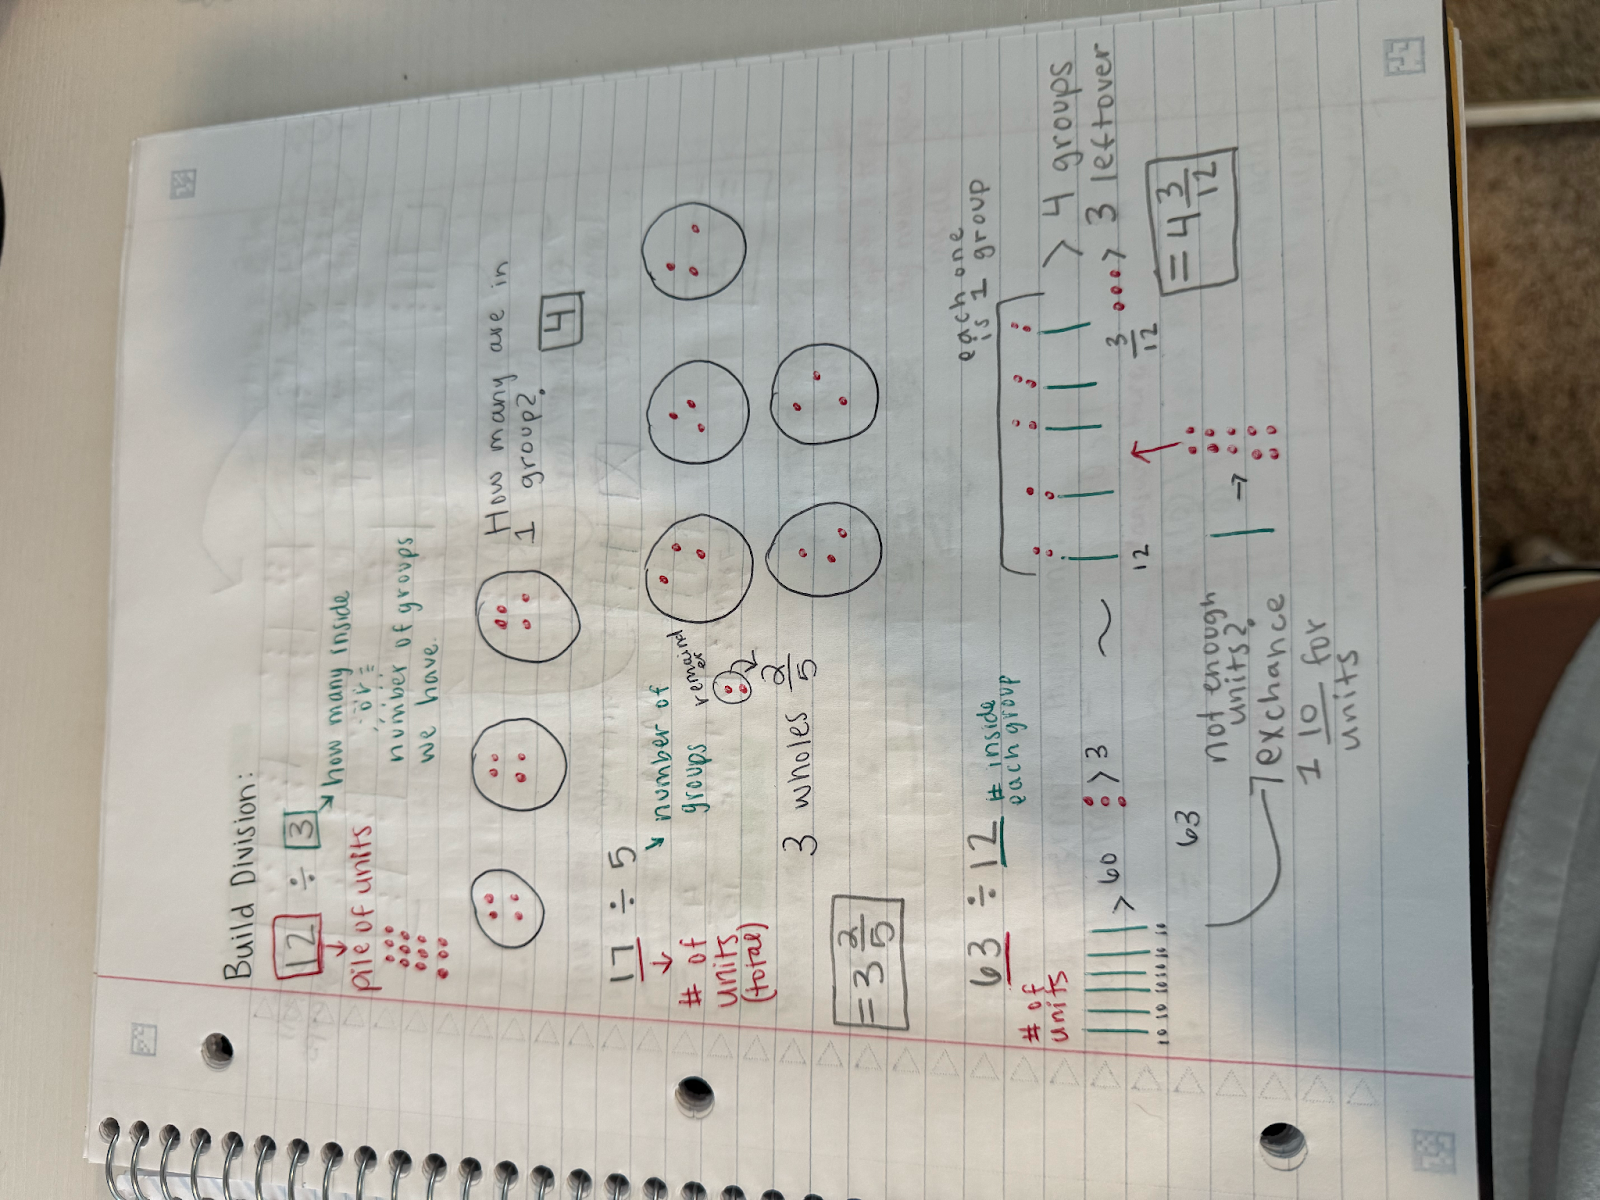 Build Division:
12 ÷ 3
how many inside
or
number of groups
we have.
pile of units
How many are in
1 group?
4
17 ÷ 5
number of
groups
# of
units
(total)
remainder
2/5
3 wholes
= 3 2/5
63 ÷ 12
# inside
each group
# of
units
> 60
> 3
10 10 10 10 10 10
63
~
12
each one
is 1 group
> 4 groups
3/12
> 3 leftover
= 4 3/12
not enough
units?
exchance
1 10 for
units